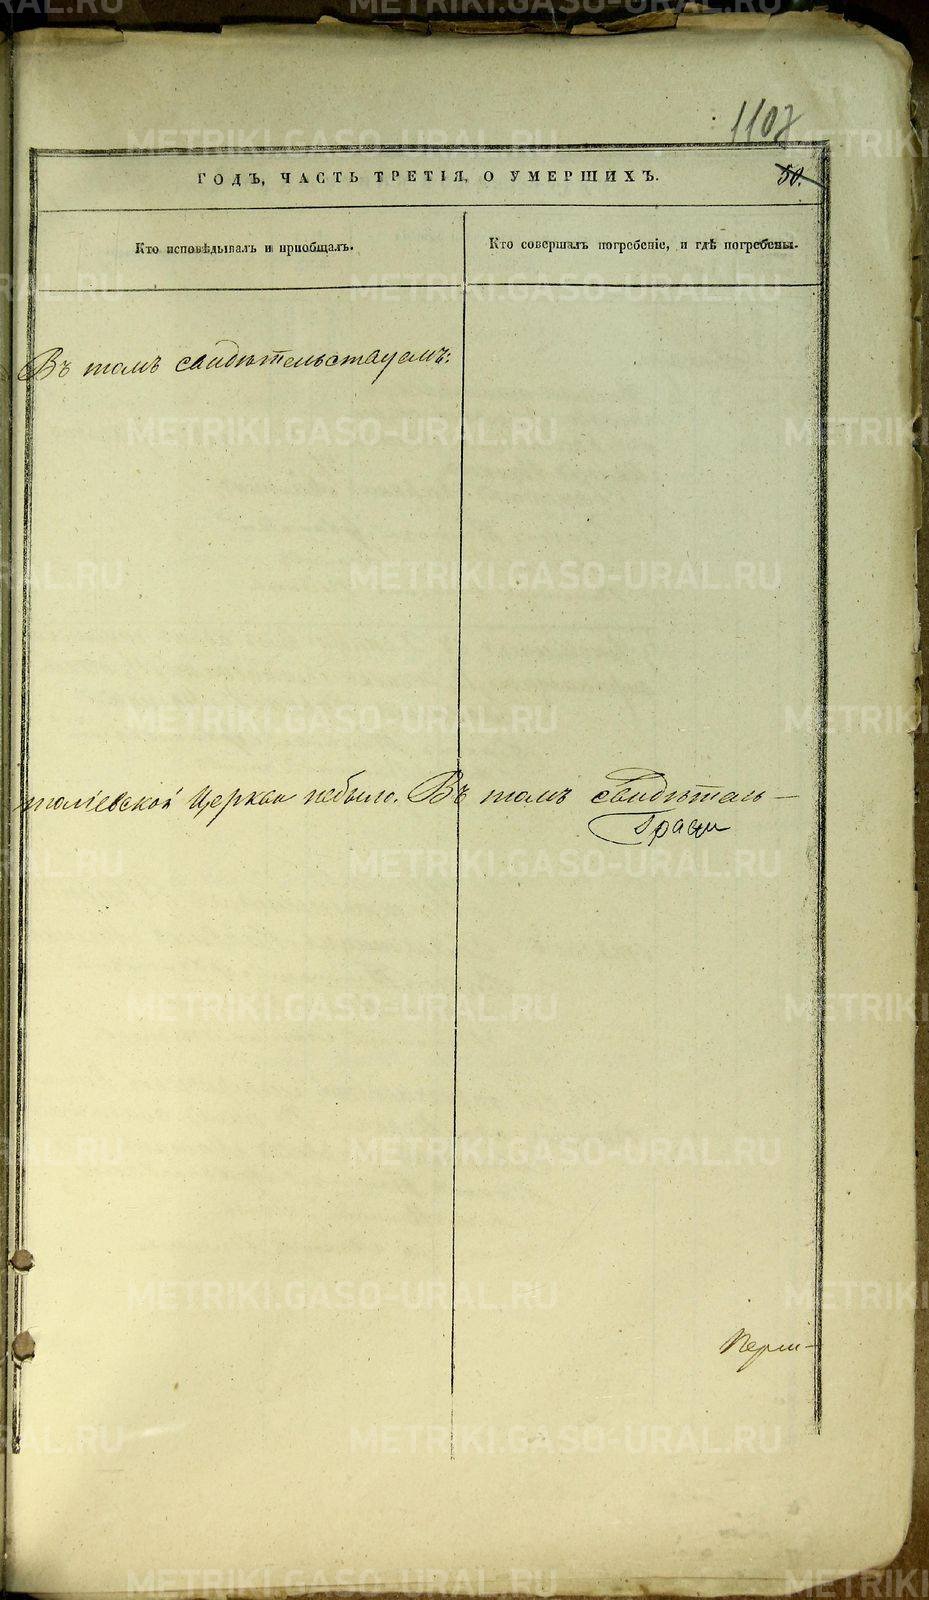 1107
ГОДЪ, ЧАСТЬ ТРЕТІЯ, О УМЕРШИХЪ.
50.
Кто исповѣдывалъ и пріобщалъ.
Кто совершалъ погребеніе, и гдѣ погребены.
Въ томъ свидѣтельствуемъ:
толіевской Церкви небыло. Въ томъ свидѣтель-
Перм-
METRIKI.GASO-URAL.RU